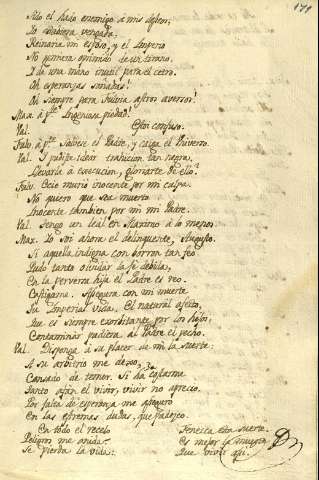 179
Solo el hado enemigo á mis
Lo hubiera vengado,
Reinaria mi esposo, y el Imperio
No gimiera oprimido de un tirano,
I de una mano inutil para el cetro.
Ah esperanzas soñadas!
Ah siempre para Fulvia astros aversos!
Max. á pte. Ingeniosa piedad!
Val. Estoy confuso.
Fulv. á pte. Salvese el Padre, y caiga el universo.
Val. I pudiste idear trahicion tan negra,
Llevarla á execucion, gloriarte de ello?
Fulv. Ecio murio inocente por mi culpa.
No quiero que sea muerto
Inocente tambien por mi mi Padre.
Val. Tengo un leal en Maximo á lo menos.
Max. Lo soi ahora el delinquente, Augusto.
Si aquella indigna con borron tan feo
Pudo tanto olvidar la fe debida,
En la perversa hija el Padre es reo.
Castigame. Asegura con mi muerte
Tu Imperial vida. El natural afecto,
Que es siempre exorbitante por los hijos,
Contaminar pudiera al Padre el pecho.
Val. Disponga á su placer de mi la suerte:
A su arbitrio me dexo.
Cansado de temer. Si da estarme
Tanto afan el vivir, vivir no aprecio.
Por falta de esperanza me aseguro
En las estremas dudas, que padezco.
En todo el recelo
Peligro me anida.
Se pierda la vida:
Fenezca esta suerte.
Es mejor la muerte,
Que vivir asi.